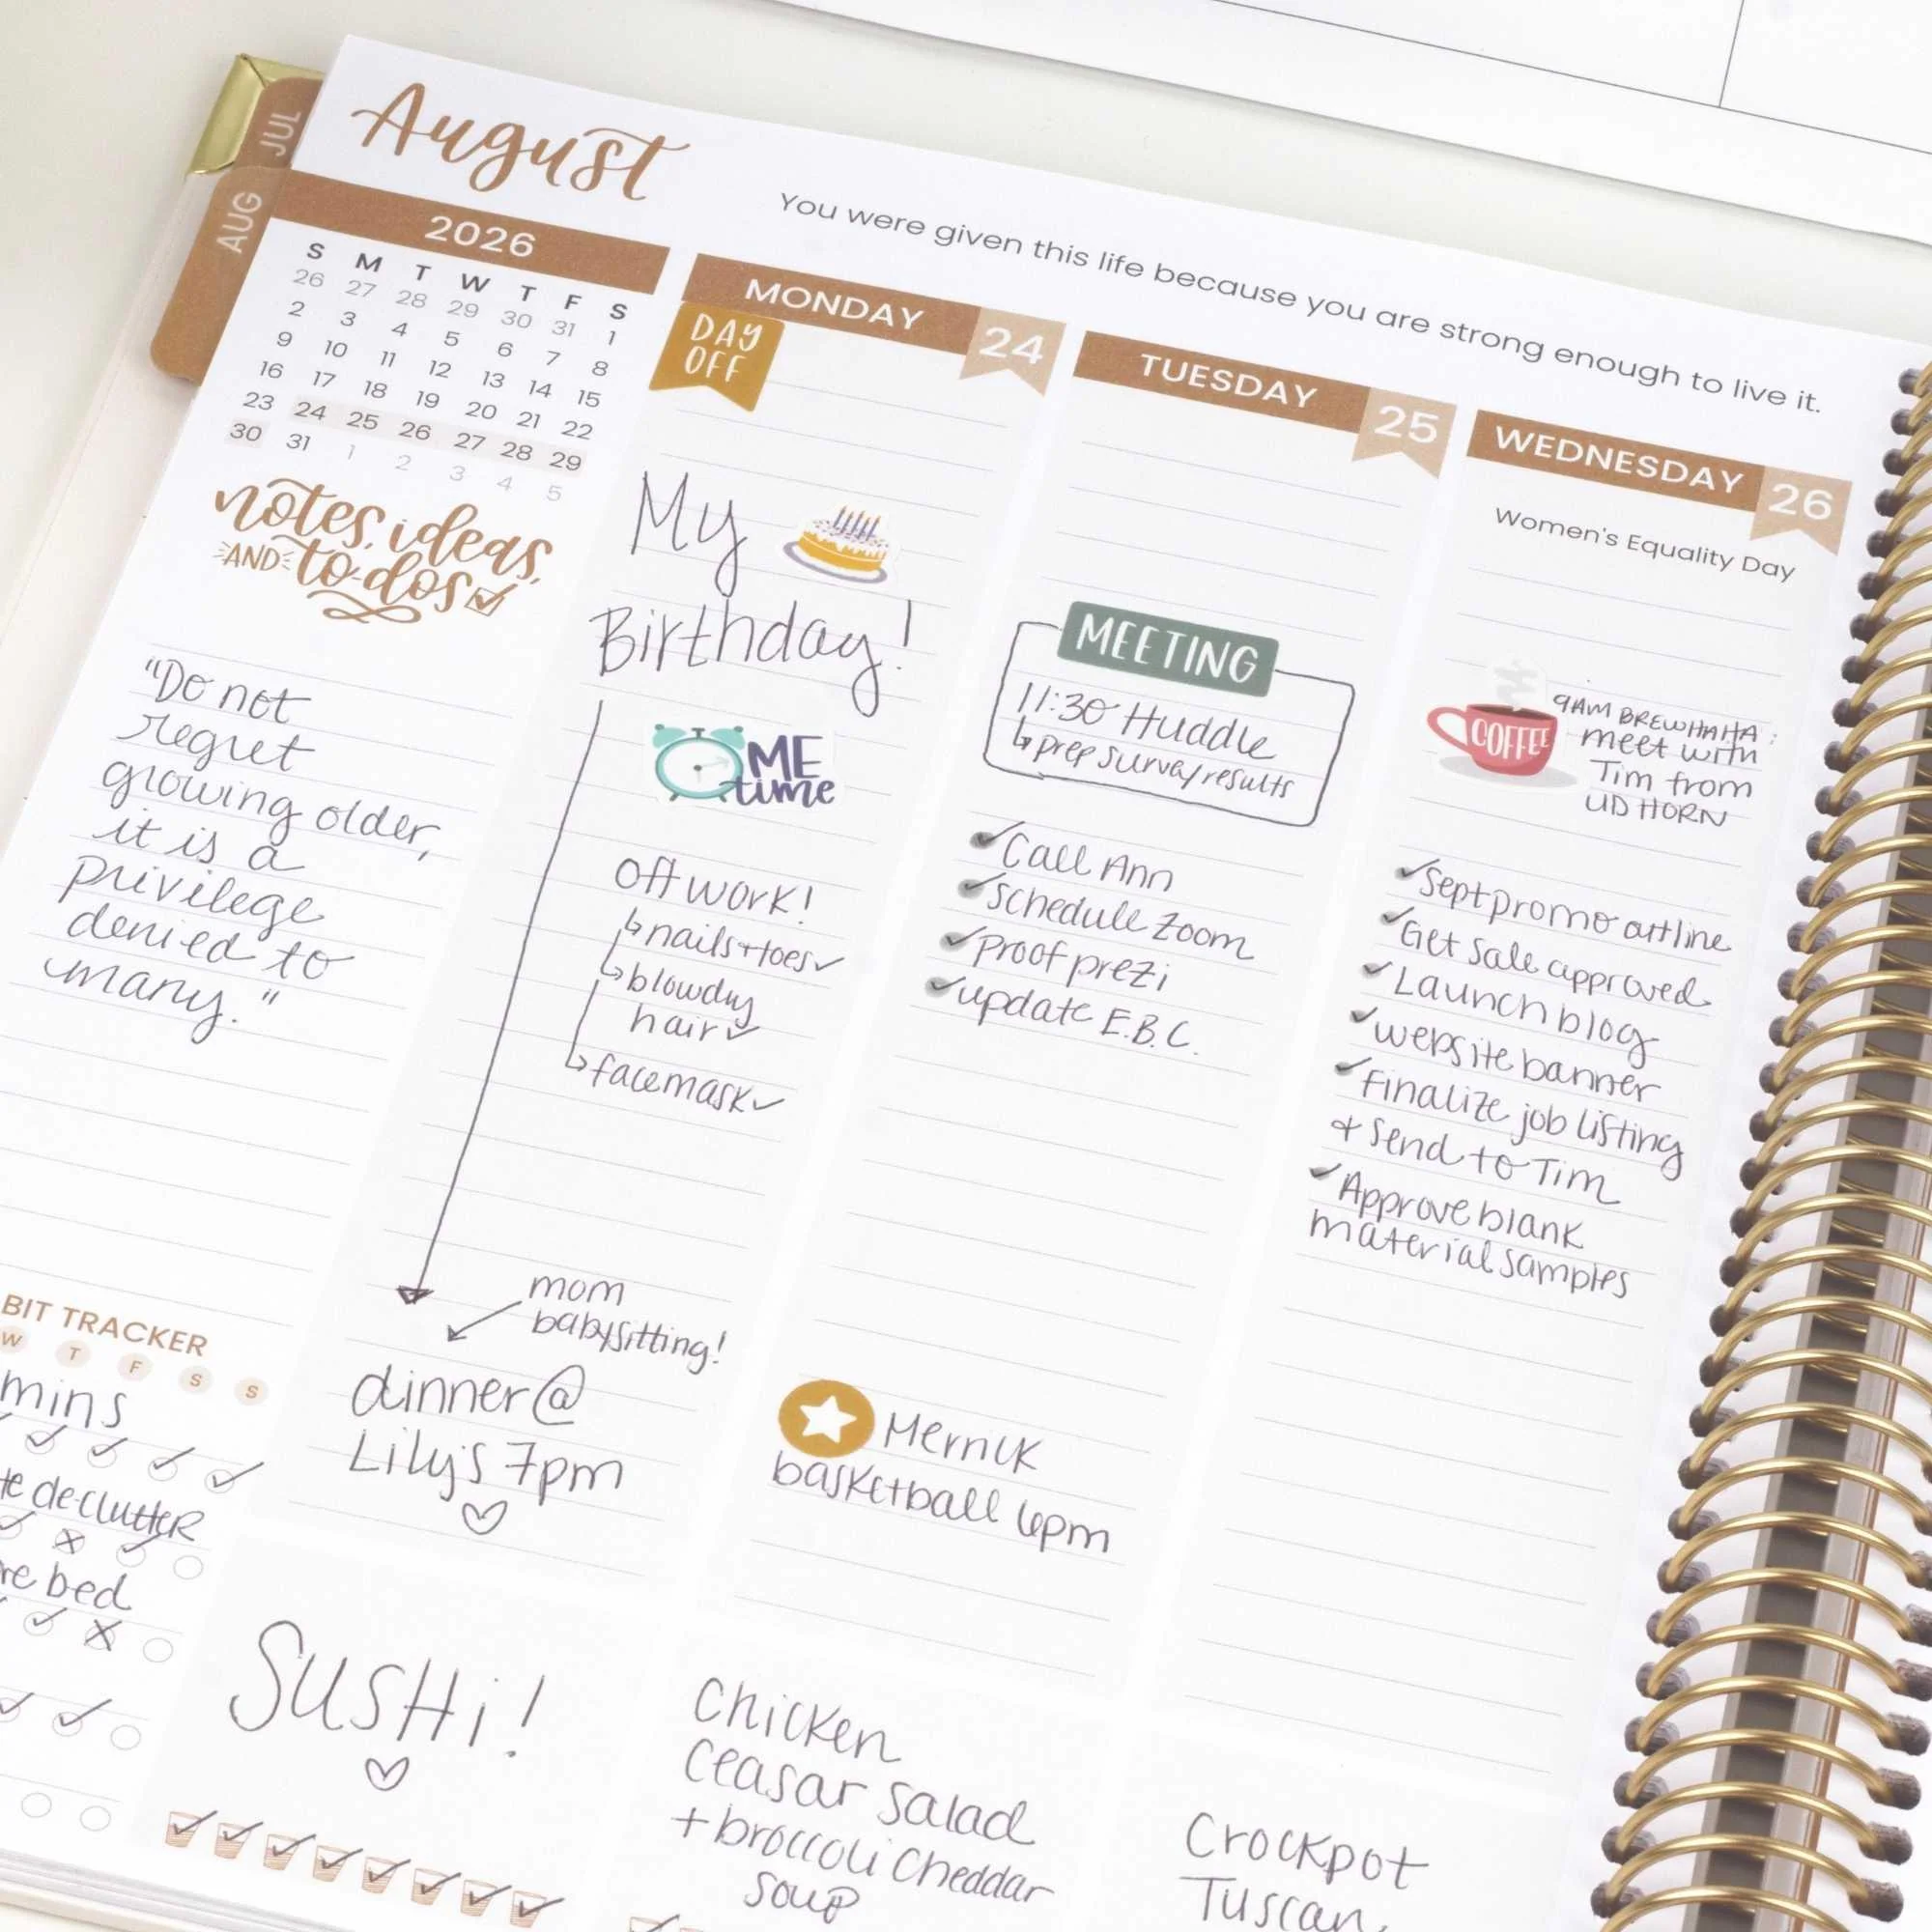 JUL
AUG
August
You were given this life because you are strong enough to live it.
2026
S M T W T F S
26 27 28 29 30 31 1
2 3 4 5 6 7 8
9 10 11 12 13 14 15
16 17 18 19 20 21 22
23 24 25 26 27 28 29
30 31 1 2 3 4 5
notes, ideas,
AND to-dos
"Do not
regret
growing older,
it is a
privilege
denied to
many."
BIT TRACKER
W T F S S
mins
te declutter
re bed
MONDAY 24
DAY
OFF
My
Birthday!
ME
time
Off work!
nails + toes
blowdry
hair
facemask
mom
babysitting!
dinner @
Lily's 7pm
SUSHi!
TUESDAY 25
MEETING
11:30 Huddle
prep survey results
Call Ann
Schedule Zoom
Proof prezi
update E.B.C.
Merrick
basketball 6pm
Chicken
Ceasar Salad
+ broccoli Cheddar
soup
WEDNESDAY 26
Women's Equality Day
COFFEE
9AM BREWHAHA:
meet with
Tim from
UD HORN
Sept promo outline
Get Sale approved
Launch blog
website banner
Finalize job listing
+ Send to Tim
Approve blank
material samples
Crockpot
Tuscan